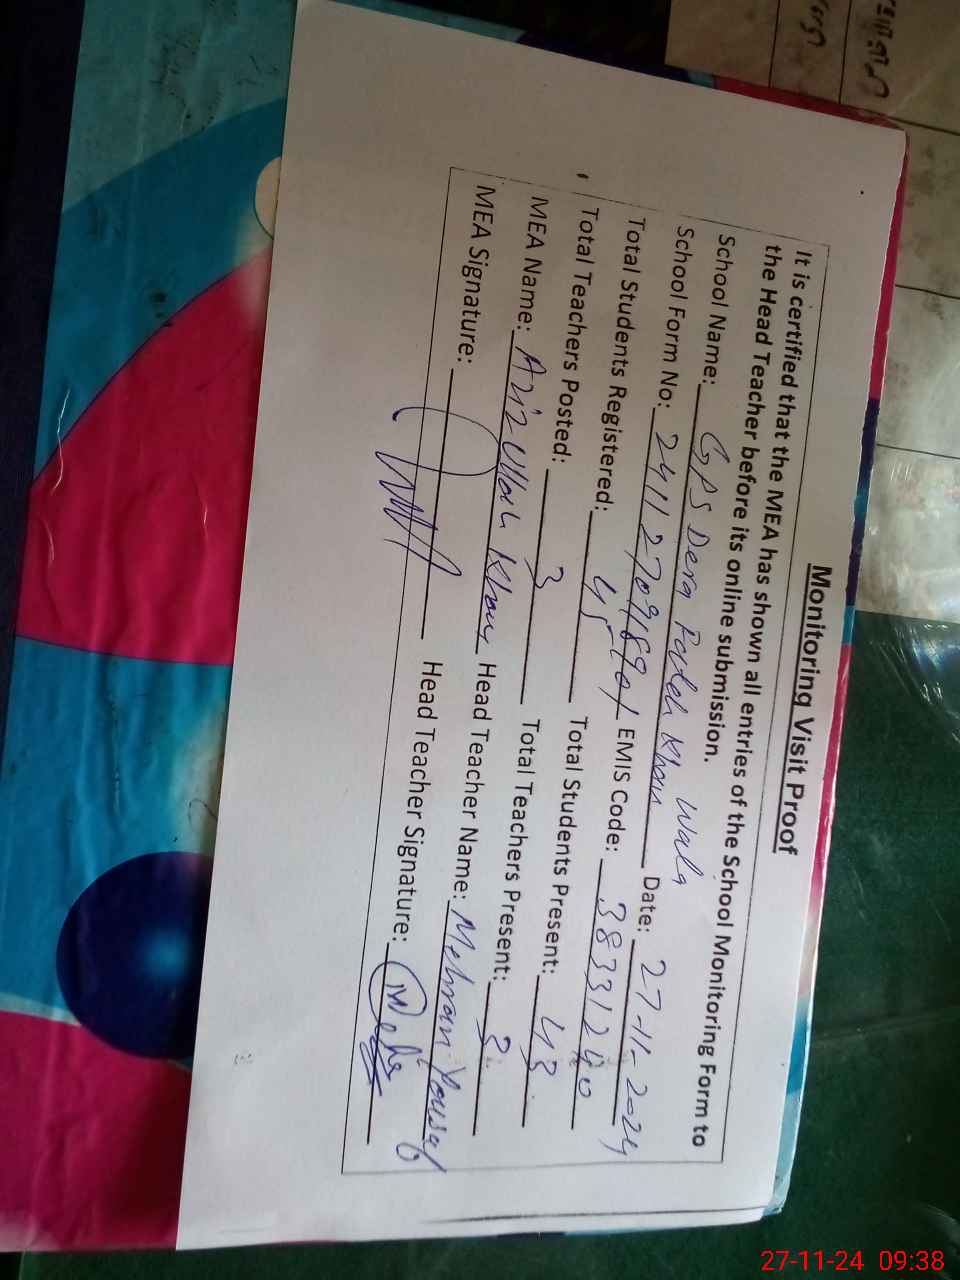 Monitoring Visit Proof
It is certified that the MEA has shown all entries of the School Monitoring Form to
the Head Teacher before its online submission.
School Name: GPS Dera Fateh Khan Wala Date: 27-11-2024
School Form No: 2411270918901 EMIS Code: 38331240
Total Students Registered: 45 Total Students Present: 43
Total Teachers Posted: 3 Total Teachers Present: 3
MEA Name: Aziz Ullah Khan Head Teacher Name: Mehran Yousaf
MEA Signature: Head Teacher Signature:
27-11-24 09:38